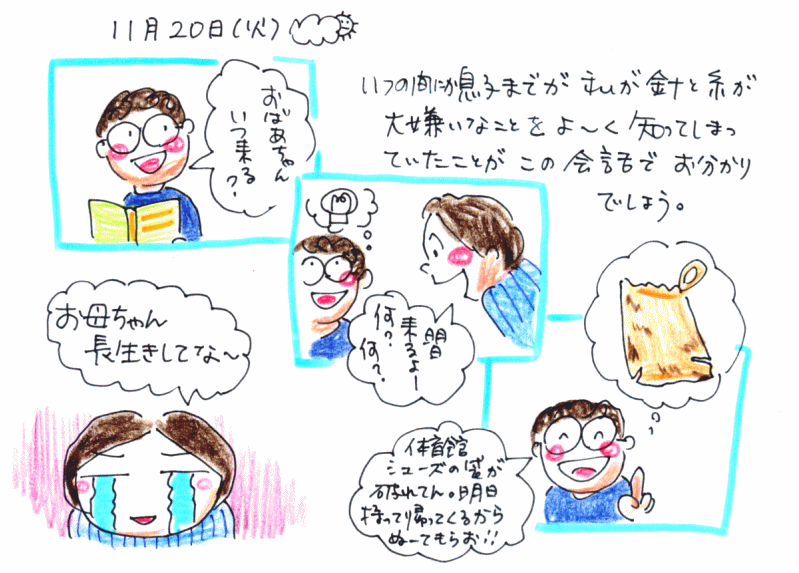 11月20日(火)
いつの間にか息子までが 私が 針と糸が
大嫌いなことを よ〜く 知ってしまっ
ていたことが この会話で お分かり
でしょう。
おばあちゃん
いつ来る?
明日
来るよー
何?何?
体育館
シューズの袋が
破れてん。明日
持って帰ってくるから
ぬーてもらお!!
お母ちゃん
長生きしてな〜